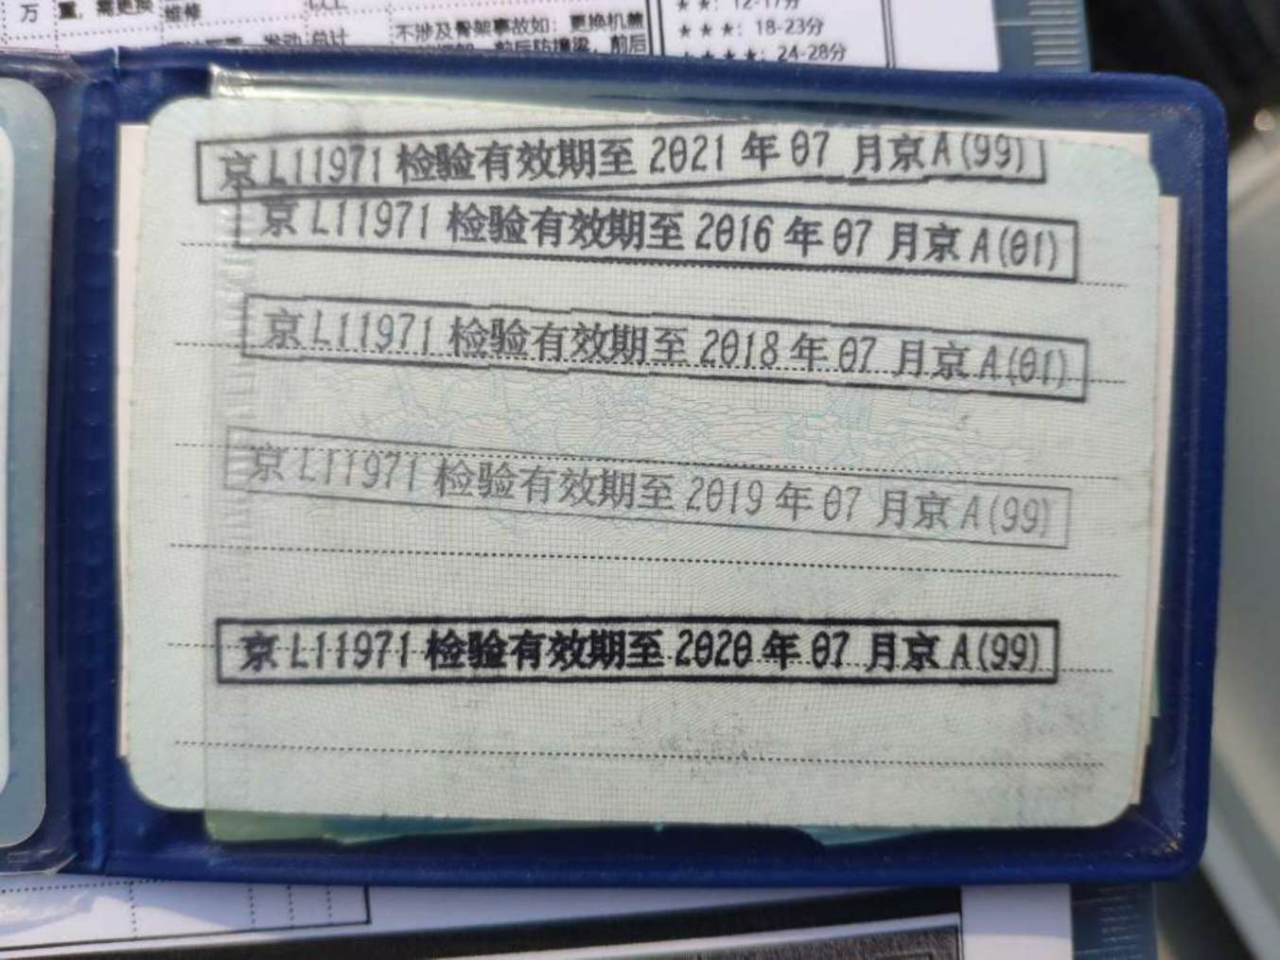 万
置，需更换
维修
总计
不涉及骨架事故如：更换机盖
前后防撞梁，前后
★★：12-17分
★★★：18-23分
★★★★：24-28分
京L11971检验有效期至2021年07月京A(99)
京L11971检验有效期至2016年07月京A(01)
京L11971检验有效期至2018年07月京A(01)
京L11971检验有效期至2019年07月京A(99)
京L11971检验有效期至2020年07月京A(99)